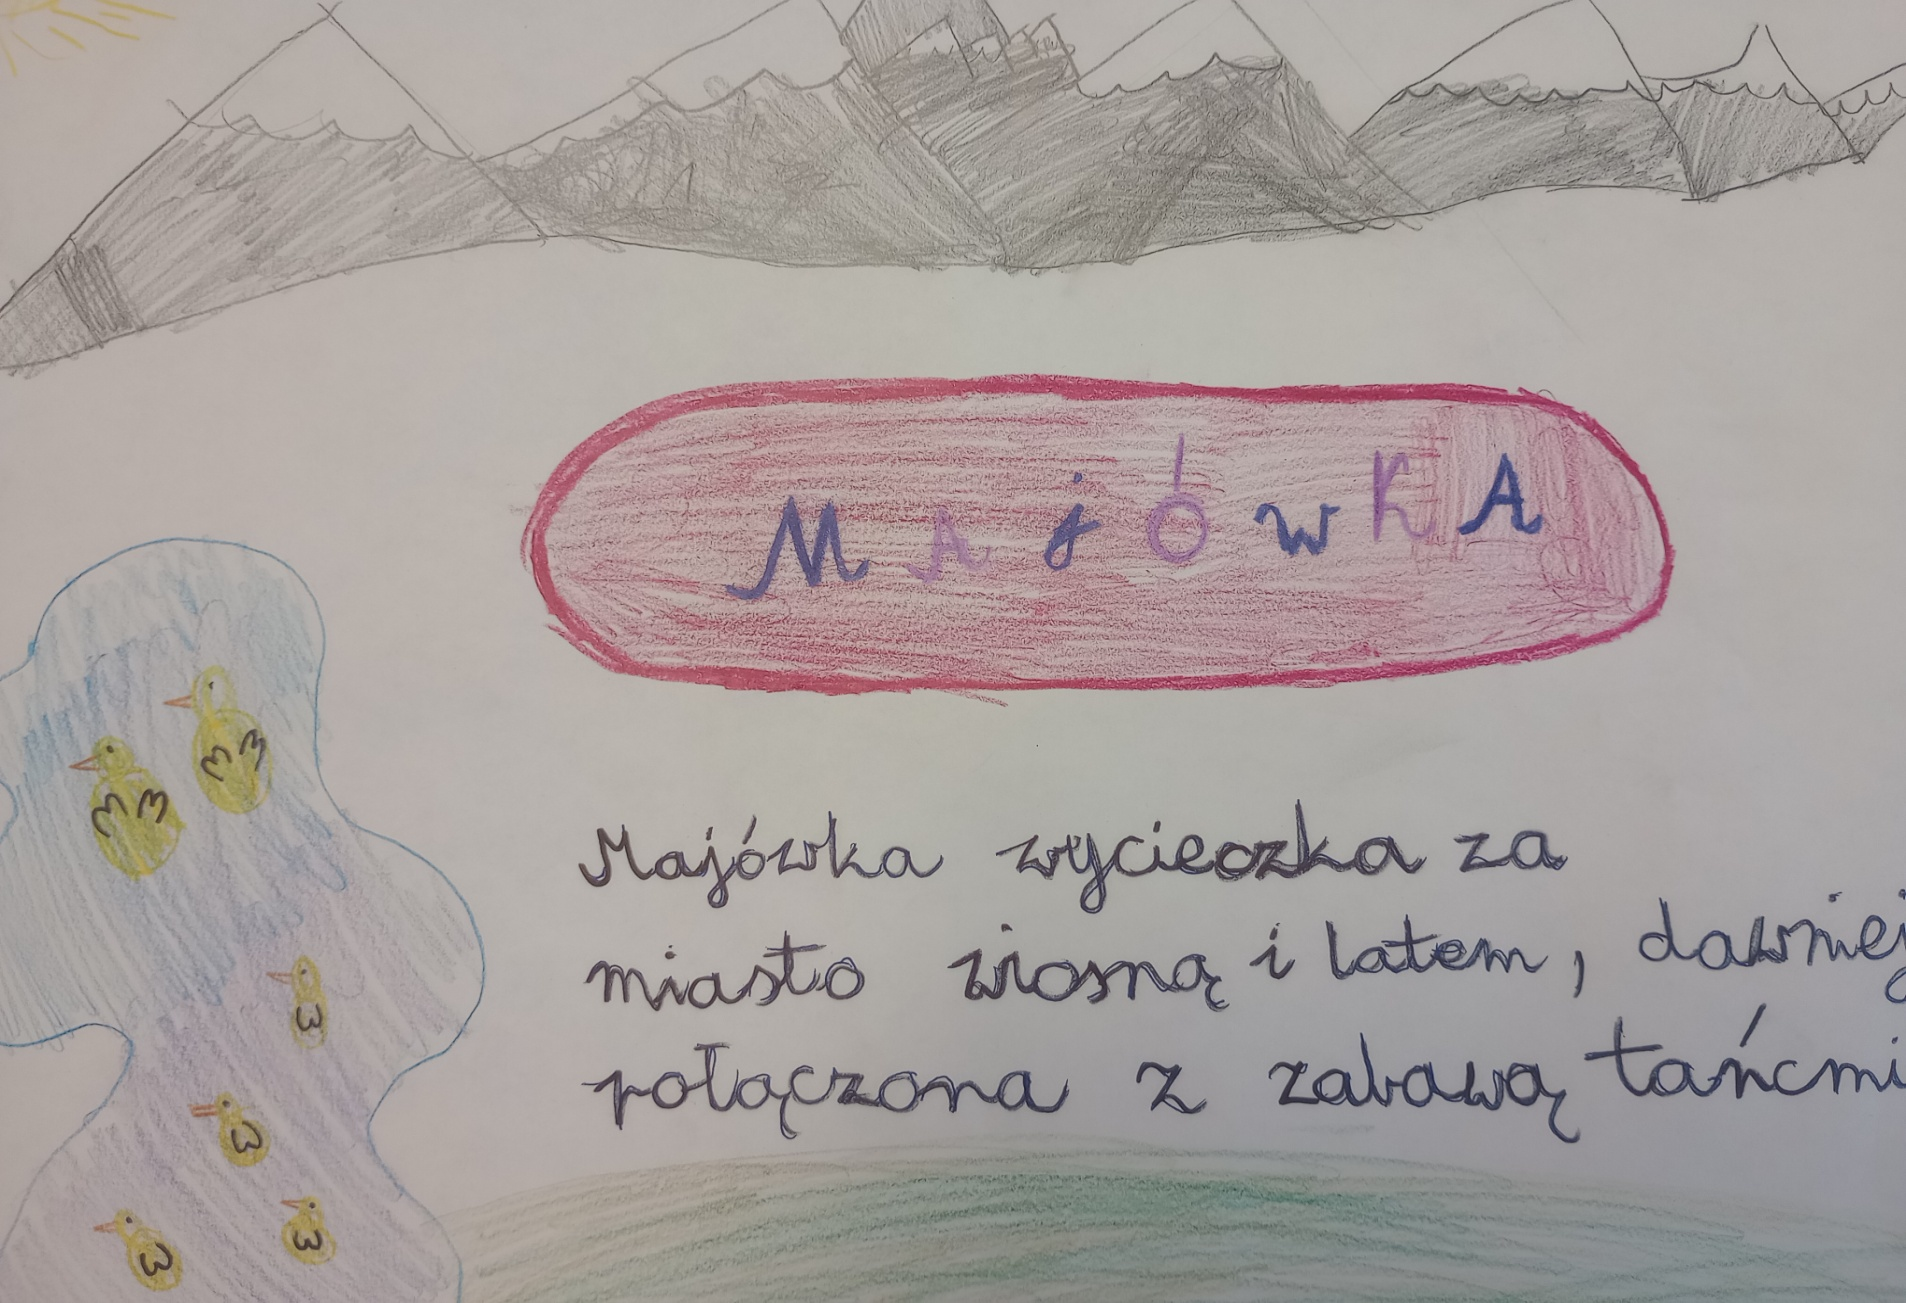 MAjÓwKA
Majówka wycieczka za
miasto wiosną i latem, dawniej
połączona z zabawą tańcmi